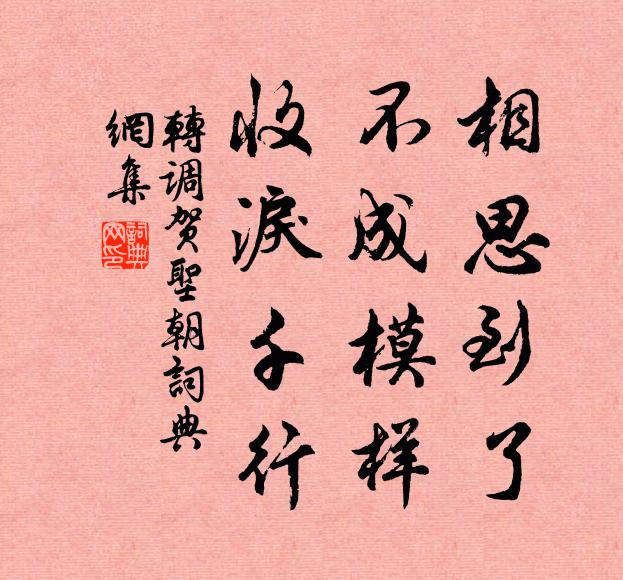 相思到了
不成模样
收淚千行
轉调贺聖朝詞典
網集
詞典网印